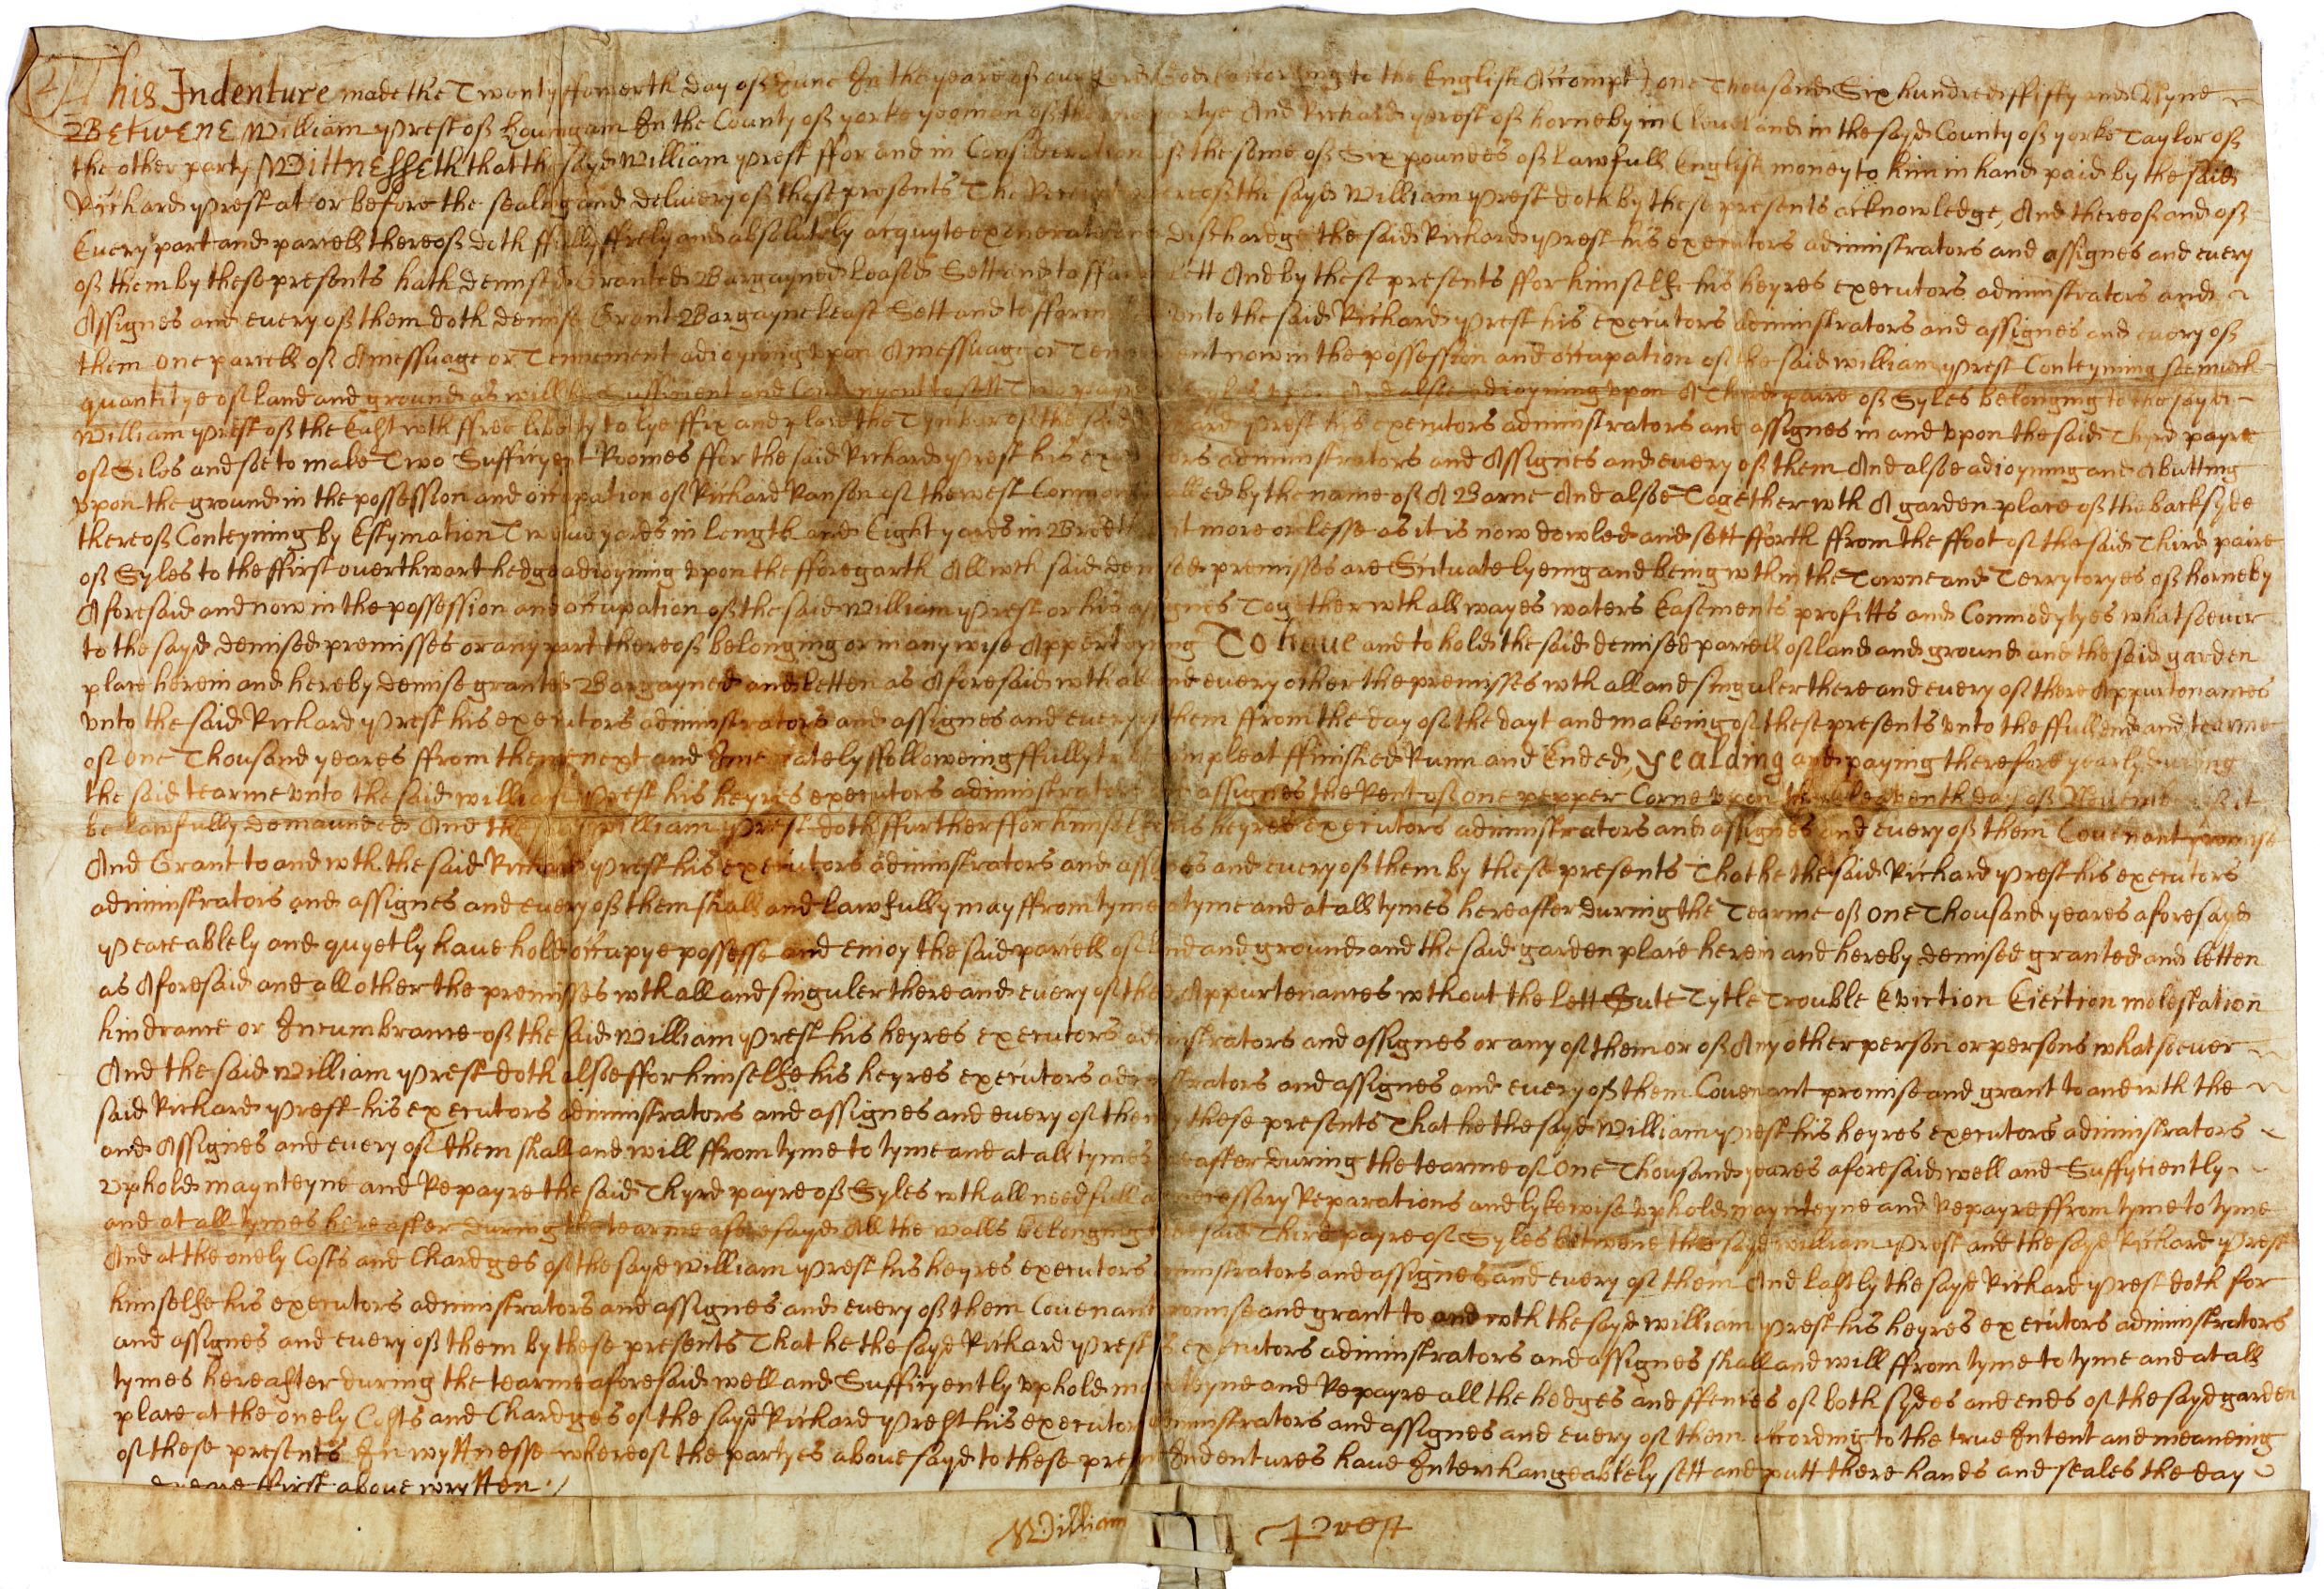 This Indenture made the Twenty ffowerth day of June In the yeare of our Lord God (according to the English Accompt) one Thousand Six hundred ffifty and Nyne
Betwene William Prest of in the County of yorke yeoman of the one partye And Richard Prest of horneby in Cleveland in the sayd County of yorke Taylor of
the other party Wittnesseth that the sayd William Prest ffor and in Consideration of the some of Six poundes of Lawfull English money to him in hand paid by the said
Richard Prest at or before the sealing and delivery of these presents The Receipt whereof the sayd William Prest doth by these presents acknowledge, And thereof and of
Every part and parcell thereof doth ffully ffrely and absolutely acquyte exonerate and dischardge the said Richard Prest his executors administrators and assignes and every
of them by these presents hath demised Granted Bargayned Leased Sett and to ffarme Lett And by these presents ffor himselfe his heyres executors administrators and
Assignes and every of them doth demise Grant Bargayne lease Sett and to fferm unto the said Richard Prest his executors administrators and assignes and every of
them one parcell of A messuage or Tennement adioyning upon A messuage or Tennement now in the possession and occupation of the said William Prest Conteyning soe much
quantitye of land and ground as will be Sufficient and Convenyent to sett Two payre of Syles upon And alsoe adioyning upon A Third paire of Syles belonging to the sayd
William Prest of the East wth ffree liberty to lye ffix and place the Tymber of the said Richard Prest his executors administrators and assignes in and upon the said Third payre
of Siles and soe to make Two Sufficyent Roomes ffor the said Richard Prest his executors administrators and Assignes and every of them And alsoe adioyning and Abutting
upon the ground in the possession and occupation of Richard Ranson of the west Commonly called by the name of A Barne And alsoe Together wth A garden place of the backsyde
thereof Conteyning by Estymation Twelve yards in length and Eight yards in Bredth be it more or lesse as it is now dowled and sett fforth ffrom the ffoot of the said Third paire
of Syles to the ffirst overthwart hedge adioyning upon the fforegarth All wch said demised premisses are Scituate lyeing and being wthin the Towne and Terrytoryes of horneby
Aforesaid and now in the possession and occupation of the said William Prest or his assignes Together wth all wayes waters Easements profitts and Commodytyes whatsoever
to the sayd demised premisses or any part thereof belonging or in any wise Apperteyning To have and to hold the said demised parcell of land and ground and the said garden
place herein and hereby demise granted Bargayned and letten as Aforesaid wth all and every other the premysses wth all and singuler there and every of there Appurtenances
unto the said Richard Prest his executors administrators and assignes and every of them ffrom the day of the dayt and makeing of these presents unto the ffull end and tearme
of one Thousand yeares ffrom thence next and Imediately ffolloweing ffully to be Compleat ffinished Runn and Ended, yealding and paying therefore yearly during
the said tearme unto the said William Prest his heyres executors administrators and assignes the Rent of one pepper Corne upon the eleaventh day of November if it
be lawfully demaunded And the said William Prest doth ffurther ffor himselfe his heyres executors administrators and assignes and every of them Covenant promise
And Grant to and wth the said Richard Prest his executors administrators and assignes and every of them by these presents That he the said Richard Prest his executors
administrators and assignes and every of them shall and lawfully may ffrom tyme to tyme and at all tymes hereafter during the Tearme of One Thousand yeares aforesayd
Peaceablely and quyetly have hold occupye possesse and enioy the said parcell of land and ground and the said garden place herein and hereby demised granted and letten
as Aforesaid and all other the premisses wth all and singuler there and every of there Appurtenances wthout the Lett Sute Tytle Trouble Eviction Eiection molestation
hindrance or Incumbrance of the said William Prest his heyres executors administrators and assignes or any of them or of Any other person or persons whatsoever
And the said William Prest doth alsoe ffor himselfe his heyres executors administrators and assignes and every of them Covenant promise and grant to and wth the
said Richard Prest his executors administrators and assignes and every of them by these presents That he the sayd William Prest his heyres executors administrators
and Assignes and every of them shall and will ffrom tyme to tyme and at all tymes hereafter during the tearme of One Thousand yeares aforesaid well and Suffytiently
uphold maynteyne and Repayre the said Thyrd payre of Syles wth all needfull and necessary Reparations and lykewise uphold maynteyne and Repayre ffrom tyme to tyme
and at all tymes hereafter during the tearme aforesayd All the walls belonging to the said Third payre of Syles betwene the sayd William Prest and the sayd Richard Prest
And at the onely Costs and Chardges of the sayd William Prest his heyres executors administrators and assignes and every of them And lastly the sayd Richard Prest doth for
himselfe his executors administrators and assignes and every of them Covenant promise and grant to and wth the sayd William Prest his heyres executors administrators
and assignes and every of them by these presents That he the sayd Richard Prest his executors administrators and assignes shall and will ffrom tyme to tyme and at all
tymes hereafter during the tearme aforesaid well and Sufficyently uphold maynteyne and Repayre all the hedges and ffences of both sydes and ends of the sayd garden
place at the onely Costs and Chardges of the sayd Richard Prest his executors administrators and assignes and every of them according to the true Intent and meaneing
of these presents In wyttnesse whereof the partyes above sayd to these present Indentures have Interchangeablely sett and putt there hands and seales the day
ffirst above wrytten
William Prest